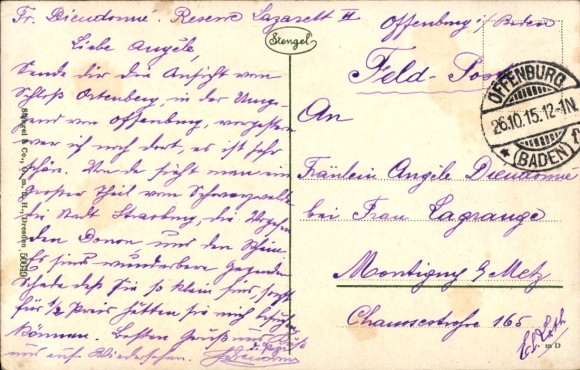 Fr. Dieudonne. Reserve Lazarett II Offenburg i/Baden
Liebe Angèle,
Sende dir die Ansicht von
Schloß Ortenberg, in der Umge-
gend von Offenburg, vorgestern
war ich noch dort, es ist sehr
schön. Von da sieht man ein
großer Theil vom Schwarzwald
die Stadt Strassburg, die Vogesen
den Donon und den Rhein
Es sind wunderbare Gegenden
Schade daß Sie so klein sind sonst
für 1/2 Preis hätten sie mich besuchen
können. Besten Gruß und Kuß
und auf Wiedersehen.
Stengel
Stengel & Co., G. m. b. H., Dresden
Feld-Post
OFFENBURG
26.10.15.12-1N.
* (BADEN)
An
Fräulein Angèle Dieudonne
bei Frau Lagrange
Montigny b/ Metz
Chausseestrasse 165
m D